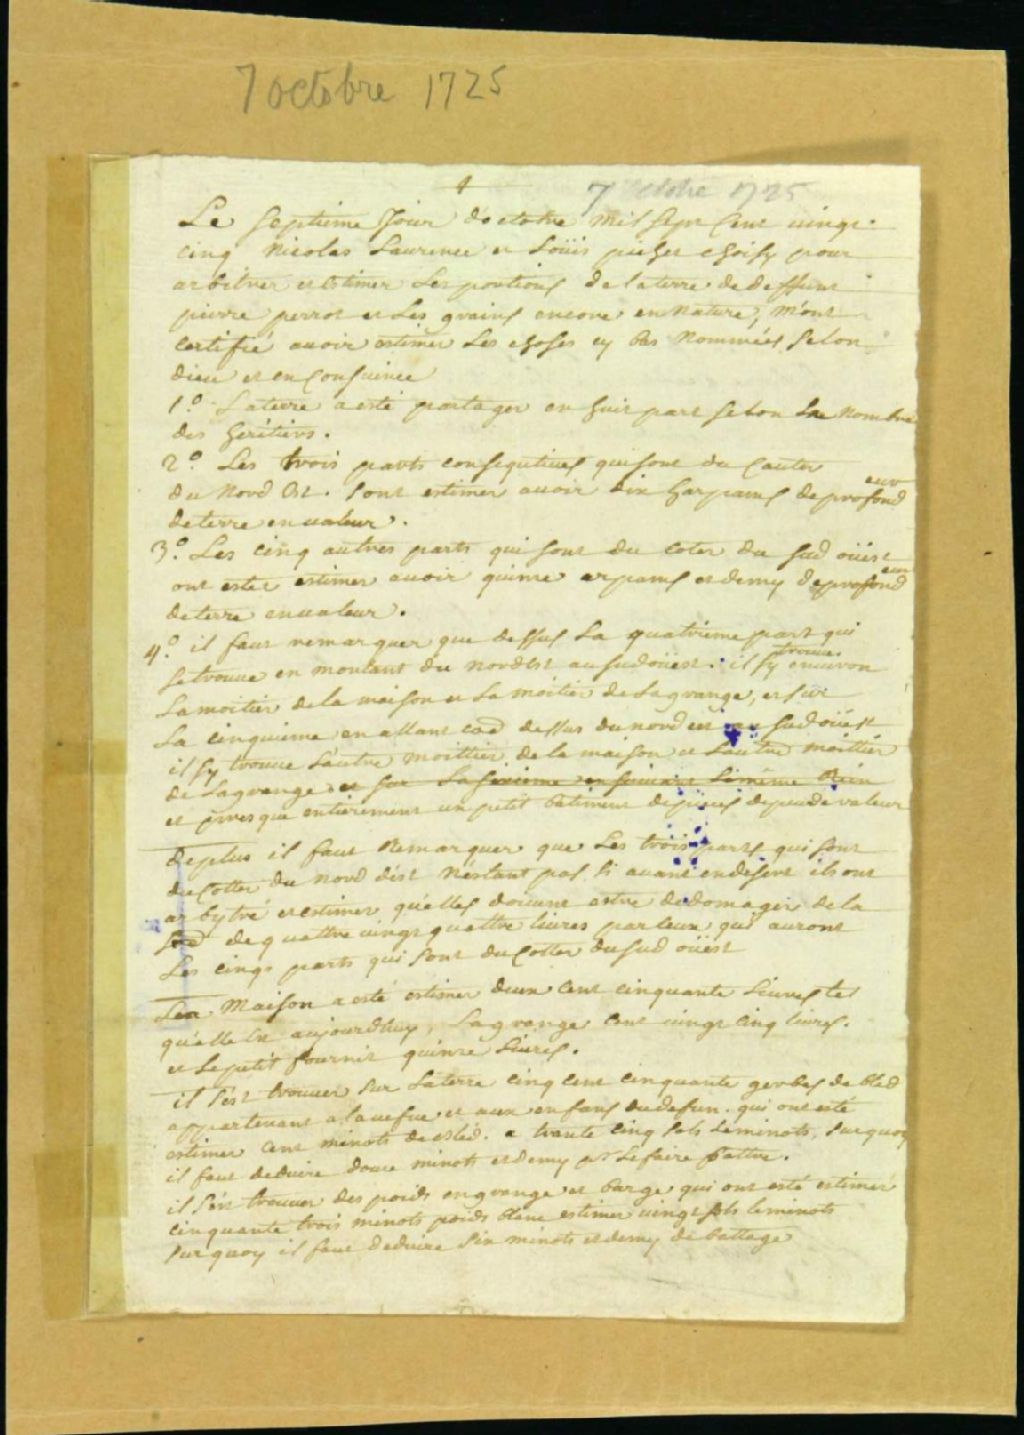 7 octobre 1725
7 octobre 1725
Le septieme Jour d'octobre mil sept Cent vingt
cinq Nicolas Laurence et Loüis puiset choisy pour
arbitrer et estimer Les portions de la terre de deffunt
pierre perrot et Les grains encore en Nature, m'ont
certifié avoir estimer Les choses cy bas Nommées selon
dieu et en Consience
1.° La terre a esté partager en huit part selon Le nombre
des heritiers.
2.° Les trois parts consequtives qui sont du Cauter
du Nord Est. sont estimer avoir dix harpants de profond
eur
de terre en valeur.
3.° Les cinq autres parts qui sont du coter du sud oüest
ont estez estimer avoir quinze arpants et demy de profond
eur
de terre en valeur.
4.° il faut remarquer que dessus La quatrieme part qui
se trouve en montant du nordest au sudoüest. il sy environ
trouve
La moitier de la maison et La moitier de La grange, et sur
La cinquieme en allant cad dessus du nord est au sud oüest
il sy trouve L'autre moittier de la maison et L'autre moittier
de La grange et sur La sixieme en suivant Le même Rein
et presque entierement un petit batiment de pieces de peu de valeur
de plus il faut Remarquer que Les trois parts qui sont
du Cotter du nord d'est N'estant pas si avant en desert ils ont
arbytré et estimer qu'elles doivent estre dedomager de la
de quattre vingt quattre livres par ceux qui auront
Les cinqs parts qui sont du Cotter du sud oüest
La Maison a esté estimer deux Cent cinquante Livres tel
qu'elle Est aujourdhuy, La grange Cent vingt cinq livres.
et Le petit fournit quinze Livres.
il s'est trouver sur La terre cinq Cent cinquante gerbes de bled
appartenant a la vefve et aux enfans du defun. qui ont esté
estimer Cent minots de bled. a trante cinq sols Le minots, surquoy
il faut deduire douze minots et demy pr Le faire battre.
il s'est trouver des poids en grange et barge qui ont esté estimer
cinquante trois minots poids blanc estimer vingt sols le minots
surquoy il faut deduire six minots et demy de battage